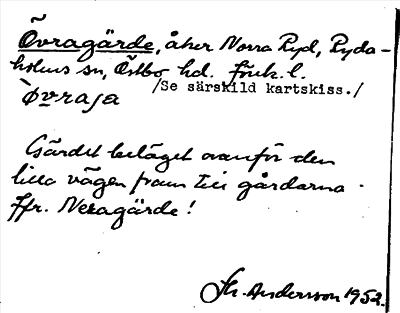 Övragärde, åker Norra Ryd, Ryda-
holms sn, Östbo hd. Jönk. l.
/Se särskild kartskiss./
òvraja
Gärdet beläget ovanför den
lilla vägen fram till gårdarna.
Jfr. Neragärde!
Andersson 1952.